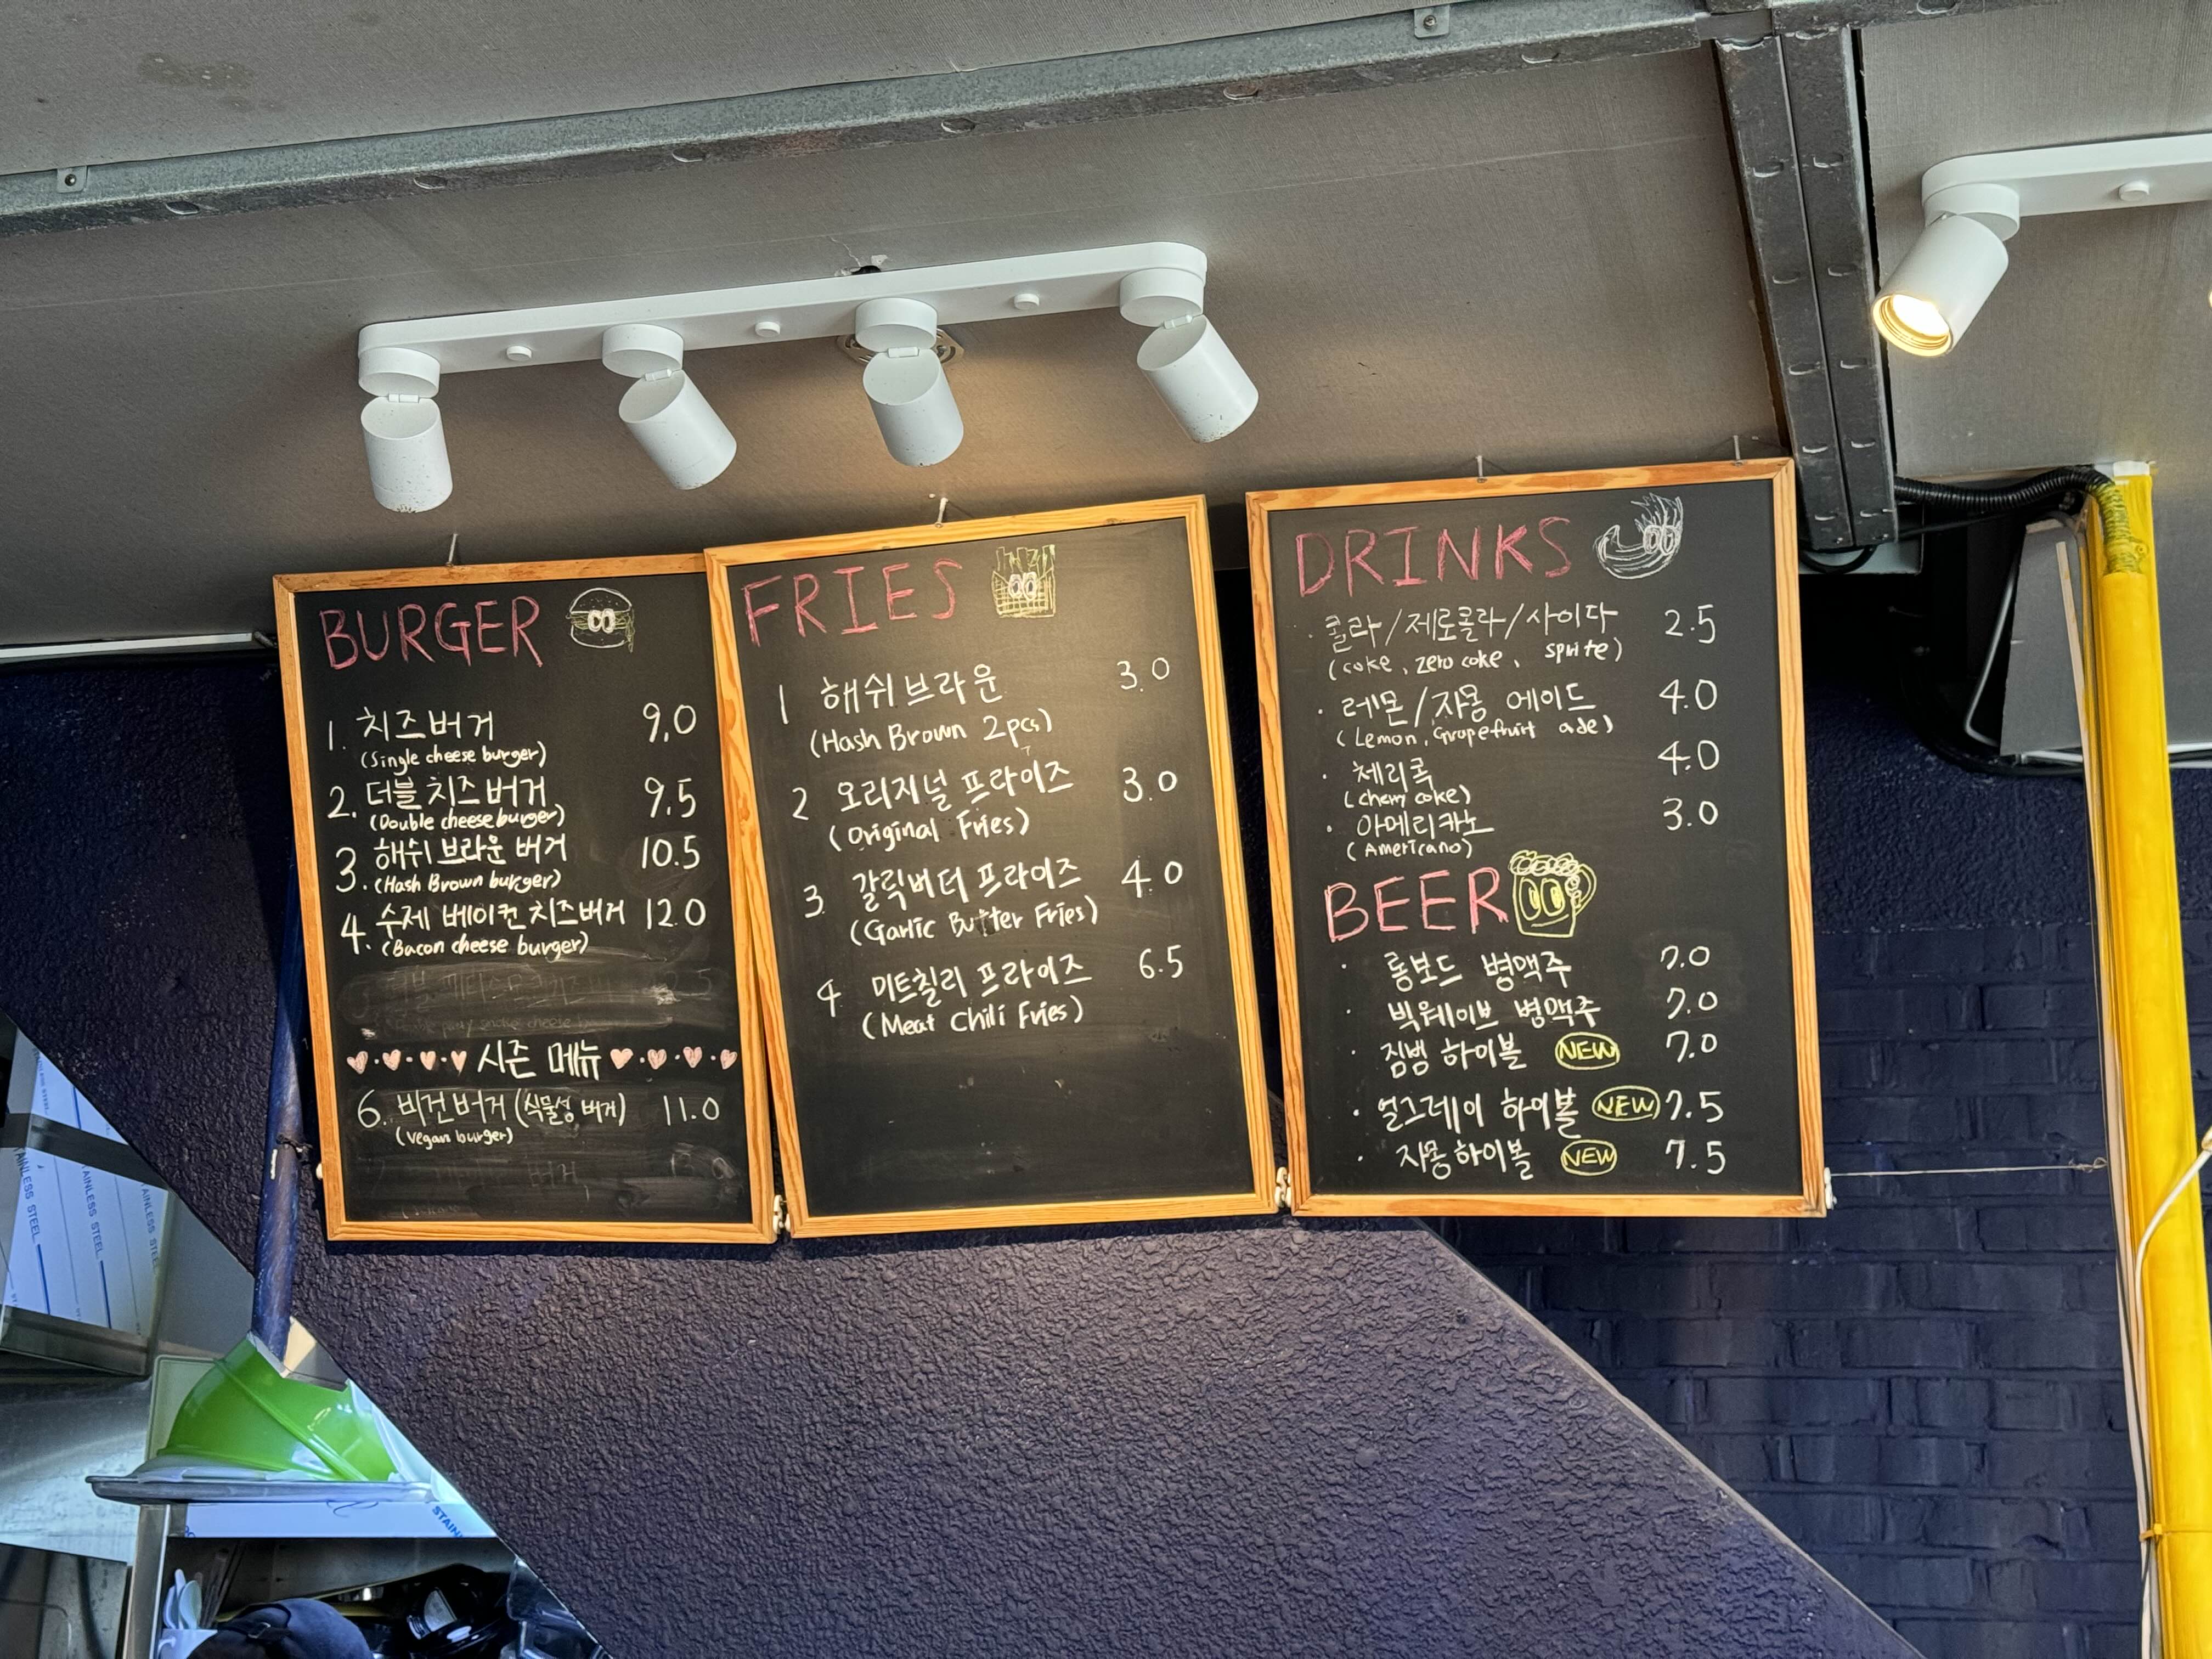 BURGER
1. 치즈버거 9.0
(Single cheese burger)
2. 더블 치즈버거 9.5
(Double cheese burger)
3. 해쉬 브라운 버거 10.5
(Hash Brown burger)
4. 수제 베이컨 치즈버거 12.0
(Bacon cheese burger)
시즌 메뉴
6. 비건버거 (식물성 버거) 11.0
(Vegan burger)
FRIES
1 해쉬브라운 3.0
(Hash Brown 2pcs)
2 오리지널 프라이즈 3.0
(Original Fries)
3. 갈릭버터 프라이즈 4.0
(Garlic Butter Fries)
4 미트칠리 프라이즈 6.5
(Meat Chili Fries)
DRINKS
· 콜라/제로콜라/사이다 2.5
(coke, zero coke, sprite)
· 레몬/자몽 에이드 4.0
(Lemon, Grapefruit ade)
· 체리콕 4.0
(cherry coke)
· 아메리카노 3.0
(Americano)
BEER
· 롱보드 병맥주 7.0
· 빅웨이브 병맥주 7.0
· 짐빔 하이볼 NEW 7.0
· 얼그레이 하이볼 NEW 7.5
· 자몽하이볼 NEW 7.5
STAINLESS STEEL